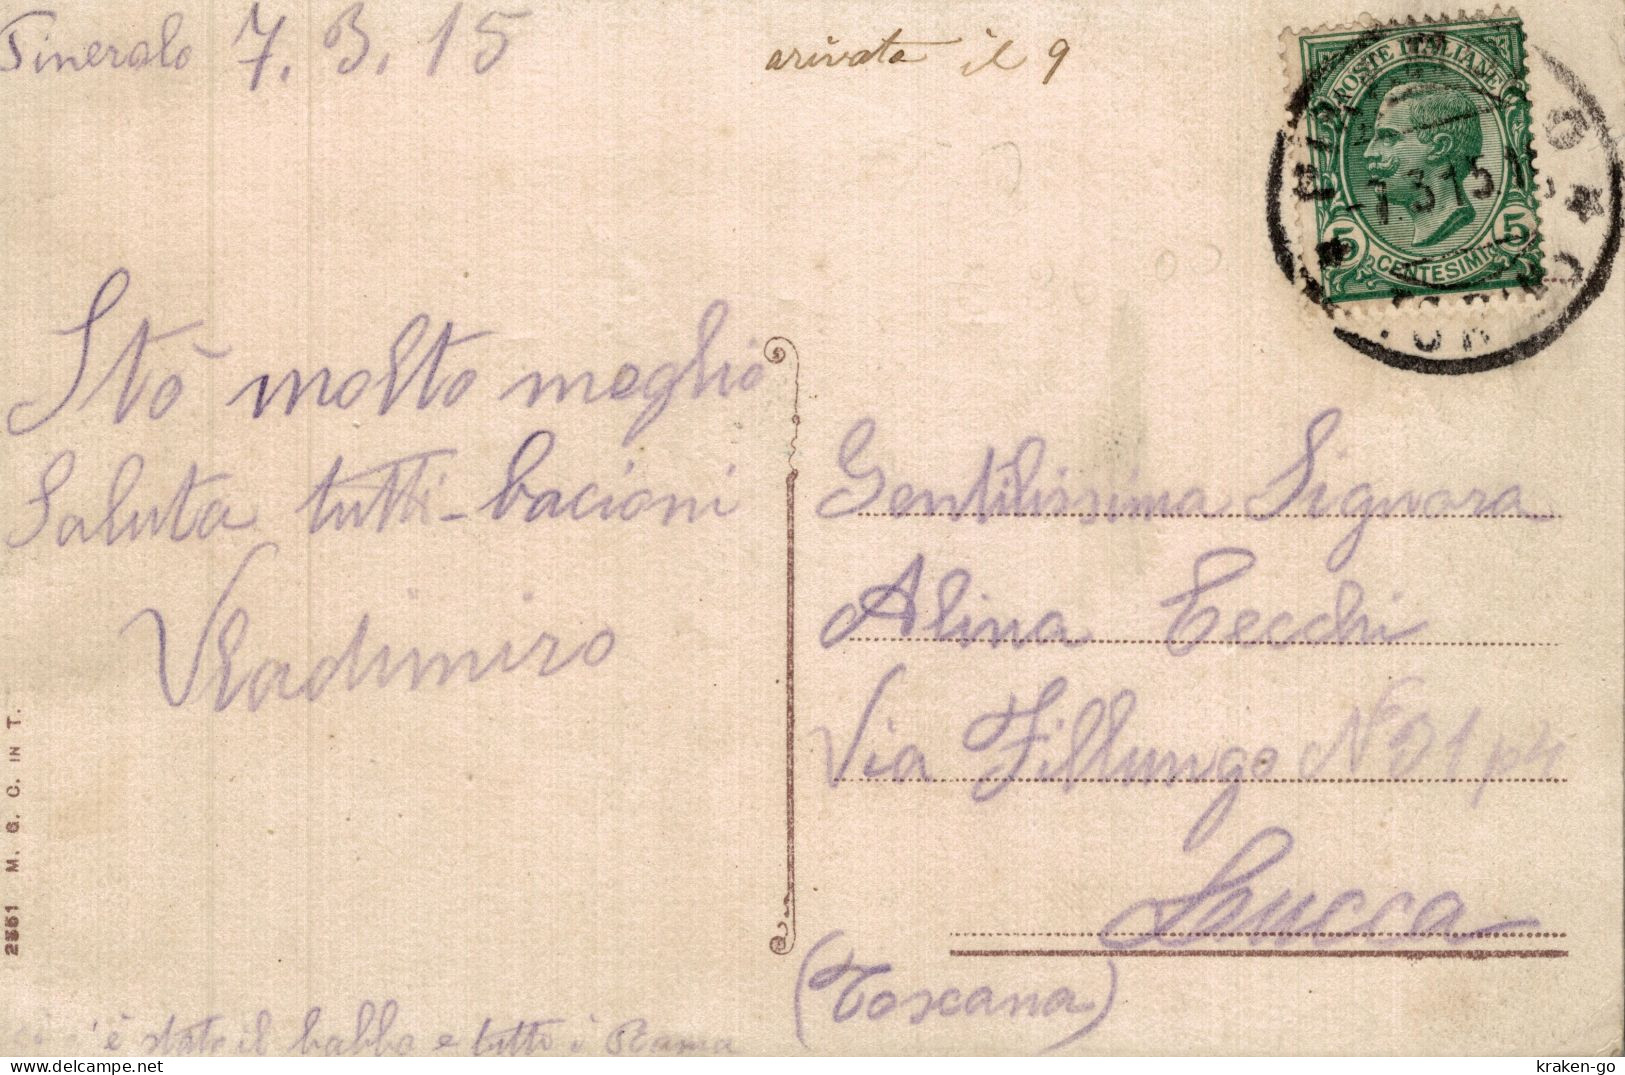 Pinerolo 7. 3. 15
arivata il 9
POSTE ITALIANE
5 CENTESIMI 5
-7.3.15.1
Stò molto meglio
Saluta tutti - bacioni
Vladimiro
Gentilissima Signora
Alina Cecchi
Via Fillungo
Lucca
(Toscana)
è stato il babbo e tutto è
2551 M. G. C. IN T.
kraken-go